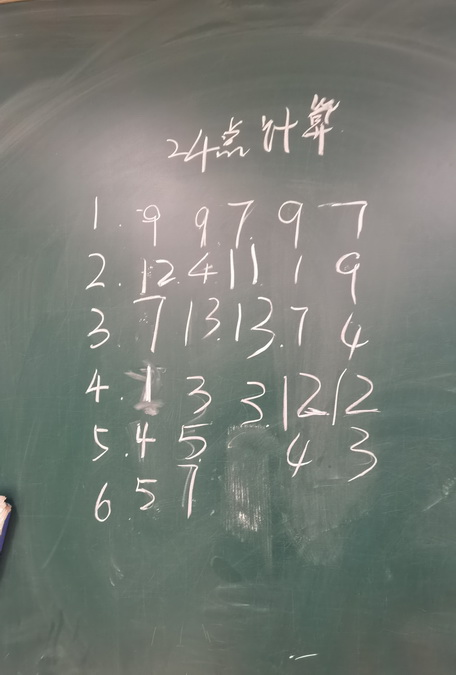 24点计算
1. 9 9. 7. 9 7
2. 12. 4. 11. 1 9
3. 7 13. 13. 7 4
4. 1 3 3. 12 12
5. 4 5 4 3
6 5 7